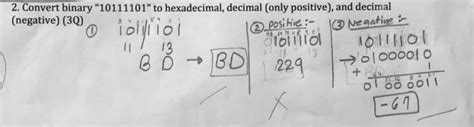 2. Convert binary "10111101" to hexadecimal, decimal (only positive), and decimal
(negative) (3Q)
①
1011|1101
11 13
B D → BD
② positive :-
10111101
229
③ Negative :-
10111101
→ 01000010
+ 1
01000011
-67